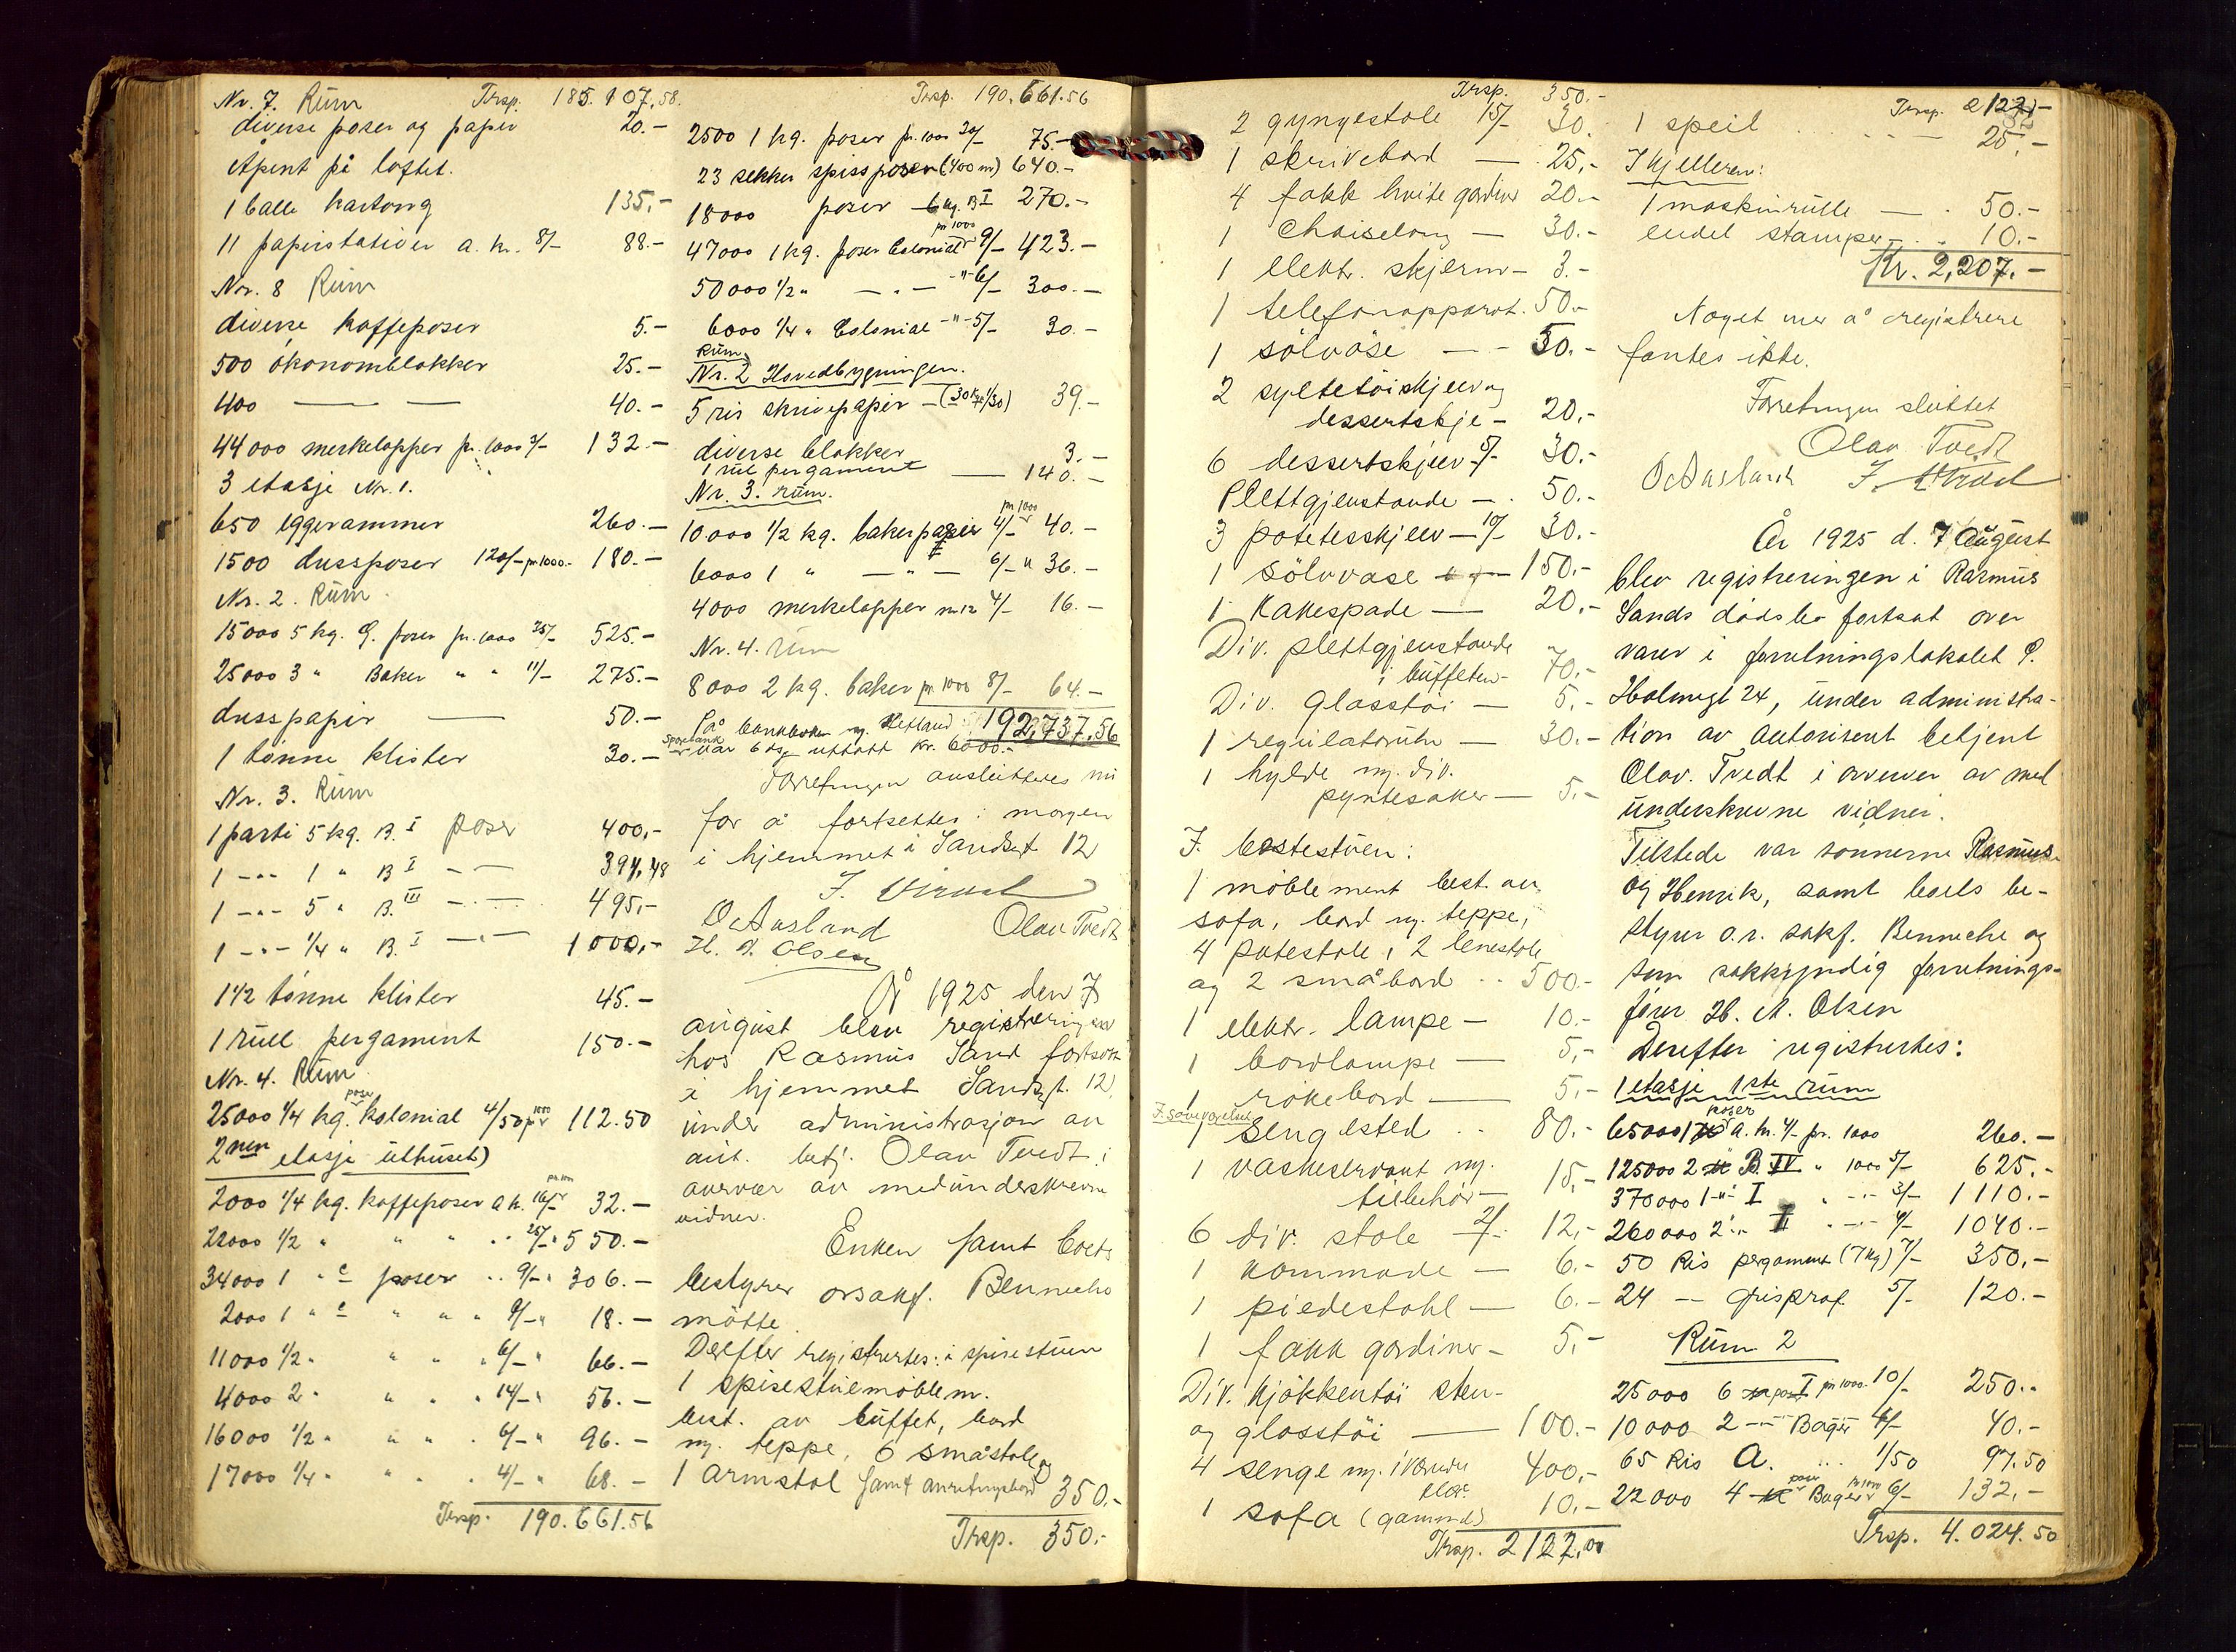 Nr. 7. Rüm Trsp. 185.107,58.
diverse poser og papir 20.-
Åpent på loftet.
1 balle kartong 135,-
11 papirstativer a. kr. 8/- 88.-
Nr. 8 Rüm
diverse kaffeposer 5.-
500 økonomblokker 25.-
400 — — 40.-
44000 merkelapper pr. 1000 3/- 132.-
3 etasje Nr. 1.
650 eggerammer 260.-
1500 dussposer 120/- pr. 1000.- 180.-
Nr. 2. Rüm.
15000 5 kg. G. poser pr. 1000 35/- 525.-
25000 3 " Baker " " 11/- 275.-
dusspapir — 50.-
1 tønne klister 30.-
Nr. 3. Rüm
1 parti 5 kg. B. I poser 400,-
1 -"- 1 " B I - - 394,48
1 -"- 5 " B. III -.- 495,-
1 -"- 1/4 " B. I -"- 1000,-
1 1/2 tønne klister 45.-
1 rüll pergament 150.-
Nr. 4. Rüm
25000 1/4 kg. poser kolonial 4/50 pr 1000 112.50
2nen etasje üthüset)
2000 1/4 kg. kaffeposer a k. 16/- pr. 1000 32.-
22000 1/2 " " " .. 25/- " 550.-
34000 1 " c poser .. 9/- " 306.-
2000 1 " c " " " 9/- " 18.-
11000 1/2 " " " " 6/- " 66.-
4000 2 " " " " 14/- " 56.-
16000 1/2 " " " . 6/- " 96.-
17000 1/4 " " " . 4/- " 68.-
Trsp. 190.661.56
Trsp. 190.661.56
2500 1 kg. poser pr. 1000 30/- 75.-
23 sekker spissposer (400 m) 640.-
18000 poser 6 kg. B I 270.-
47000 1 kg. poser Colonial pr 1000 9/- 423.-
50000 1/2 " — " — -"- 6/- 300.-
6000 1/4 " Colonial -"- 5/- 30.-
Rüm
Nr. 2 Hovedbygningen.
5 ris skrivepapir - (30 kg 1/30) 39.-
diverse blokker 3.-
1 rül pergament — 140.-
Nr. 3. rüm.
10.000 1/2 kg. bakerpapir pr 1000 4/- 40.-
6000 1 " — " — 6/- " 36.-
4000 merkelapper nr 12 4/- 16.-
Nr. 4. rüm
8000 2 kg. baker pr 1000 8/- 64.-
192,737,56
På bankboken og Hetland
Sparebank var 6 ds uttatt kr. 6000.-
Forretningen avslüttedes nü
for å fortsettes i morgen
i hjemmet i Sandsgt 12
O. Ausland Olav Tvedt
H. A. Olsen
År 1925 den 7
august blev registreringen
hos Rasmüs Sand fortsatt
i hjemmet Sandsgt. 12,
ünder administrasjon av
aüt. betj. Olav Tvedt i
overvær av medünderskrevne
vidner.
Enken samt boets
bestyrer orsakf. Bennecke
møtte.
Derefter registrertes: i spisestüen
1 spisestüemøblem.
best. av büffet, bord
m. teppe, 6 småstole og
1 armstol samt anretningsbord 350.-
Trsp. 350.-
Trsp. 350.-
2 gyngestole 15/- 30.
1 skrivebord — 25,-
4 fakk hvite gardiner 20.-
1 Chaiselong — 30.-
1 elektr. skjerm - 3.-
1 telefonapparat. 50.-
1 sølvøse - - 50.-
2 syltetøiskjeer og
dessertskje - 20,-
6 dessertskjeer 5/- 30.-
Plettgjenstande - . 50.-
3 potetesskjeer - 10/- 30.-
1 sølvvase 150.-
1 Kakespade — 20,-
Div. plettgjenstande
i büffeten - 70.-
Div. glasstøi — 5.-
1 regülatorühr — 30.-
1 hylde m. div.
pyntesaker — 5.-
I bestestüen:
1 møblement best. av
sofa, bord m. teppe,
4 polestole, 2 lenestole
og 2 småbord .. 500.-
1 elektr. lampe - 10.-
1 bordlampe — 5,-
1 røkebord — 5.-
I soveværelset
1 sengested .. 80.-
1 vaskeservant m.
tilbehør - 15,-
6 div. stole 2/- 12,-
1 kommode - 6.-
1 piedestahl - 6.-
1 fakk gardiner - 5,-
Div. kjøkkentøi sten-
og glasstøi — 100.-
4 senge m. i værende
klær 400,-
1 sofa (gammel) 10.-
Trsp. 2122,00
Trsp. 2122,-
1 speil . . . . - 25.-
I kjelleren:
1 maskinrülle — . 50.-
endel stamper - . . 10.-
Kr. 2,207.-
Noget mer å registrere
fantes ikke.
Forretningen slüttet
Olav Tvedt
O. Ausland
År 1925 d. 7 august
blev registreringen i Rasmüs
Sands dødsbo fortsat over
varer i forretningslokalet P.
Holmsgt 24, ünder administra-
tion av autorisert betjent
Olav Tvedt i overver av med
ünderskrevne vidner.
Tilstede var sønnerne Rasmüs
og Henrik, samt boets be-
styrer o.r. sakf. Bennecke og
som sakkyndig forretnings-
fører H. A. Olsen
Derefter registrertes:
1 etasje 1ste rüm
65000 1 kg poser a. kr. 4/- pr. 1000 260.-
125000 2 -"- B. IV " 1000 5/- 625.-
370000 1 -"- I " -"- 3/- 1110.-
260000 2 -"- II " -"- 4/- 1040.-
50 Ris pergament (7 kg) 7/- 350,-
24 — grisprof. 5/- 120.-
Rüm 2
25000 6 poser I pr 1000. 10/- 250.-
10000 2 -"- Bager 4/- 40.-
65 Ris A. ... 1/50 97.50
22000 4 poser Bager pr 1000 6/- 132,-
Trsp. 4.024.50